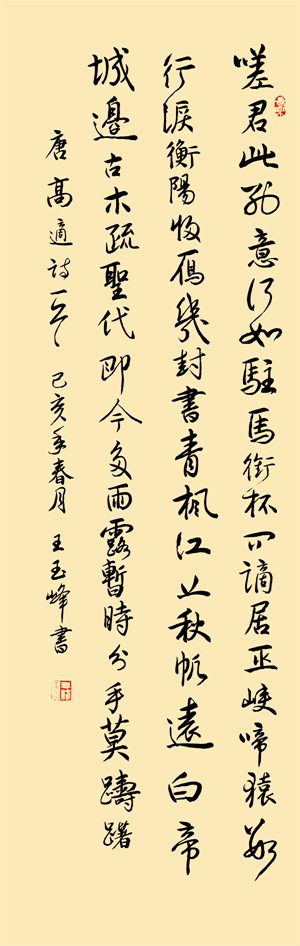 嗟君此別意何如駐馬銜杯問謫居巫峽啼猿數
行淚衡陽歸雁幾封書青楓江上秋帆遠白帝
城邊古木疏聖代即今多雨露暫時分手莫躊躇
唐高適詩一首 己亥年春月 王玉峰書